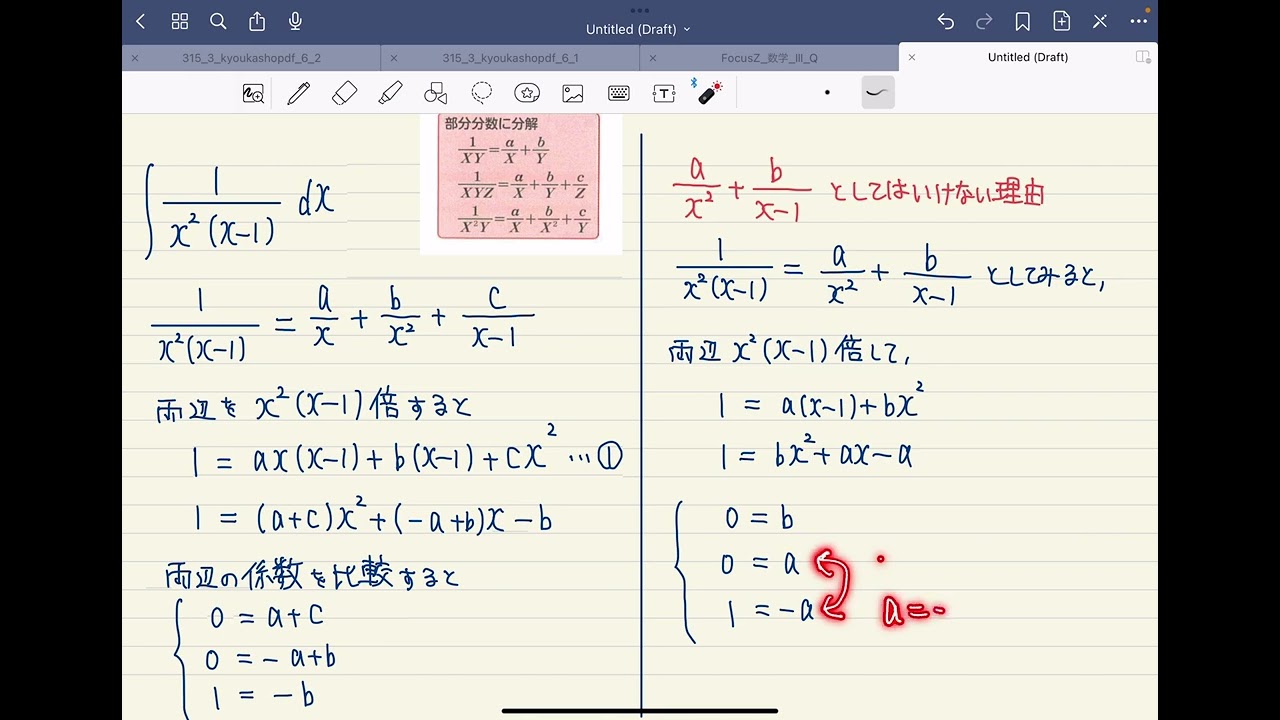 Untitled (Draft)
315_3_kyoukashopdf_6_2
315_3_kyoukashopdf_6_1
FocusZ_数学_III_Q
Untitled (Draft)
部分分数に分解
1/XY = a/X + b/Y
1/XYZ = a/X + b/Y + c/Z
1/X²Y = a/X + b/X² + c/Y
∫ 1/(x²(x-1)) dx
1/(x²(x-1)) = a/x + b/x² + c/(x-1)
両辺を x²(x-1) 倍すると
1 = ax(x-1) + b(x-1) + cx² … ①
1 = (a+c)x² + (-a+b)x - b
両辺の係数を比較すると
0 = a+c
0 = -a+b
1 = -b
a/x² + b/(x-1) としてはいけない理由
1/(x²(x-1)) = a/x² + b/(x-1) としてみると,
両辺 x²(x-1) 倍して,
1 = a(x-1) + bx²
1 = bx² + ax - a
0 = b
0 = a
1 = -a
a = -